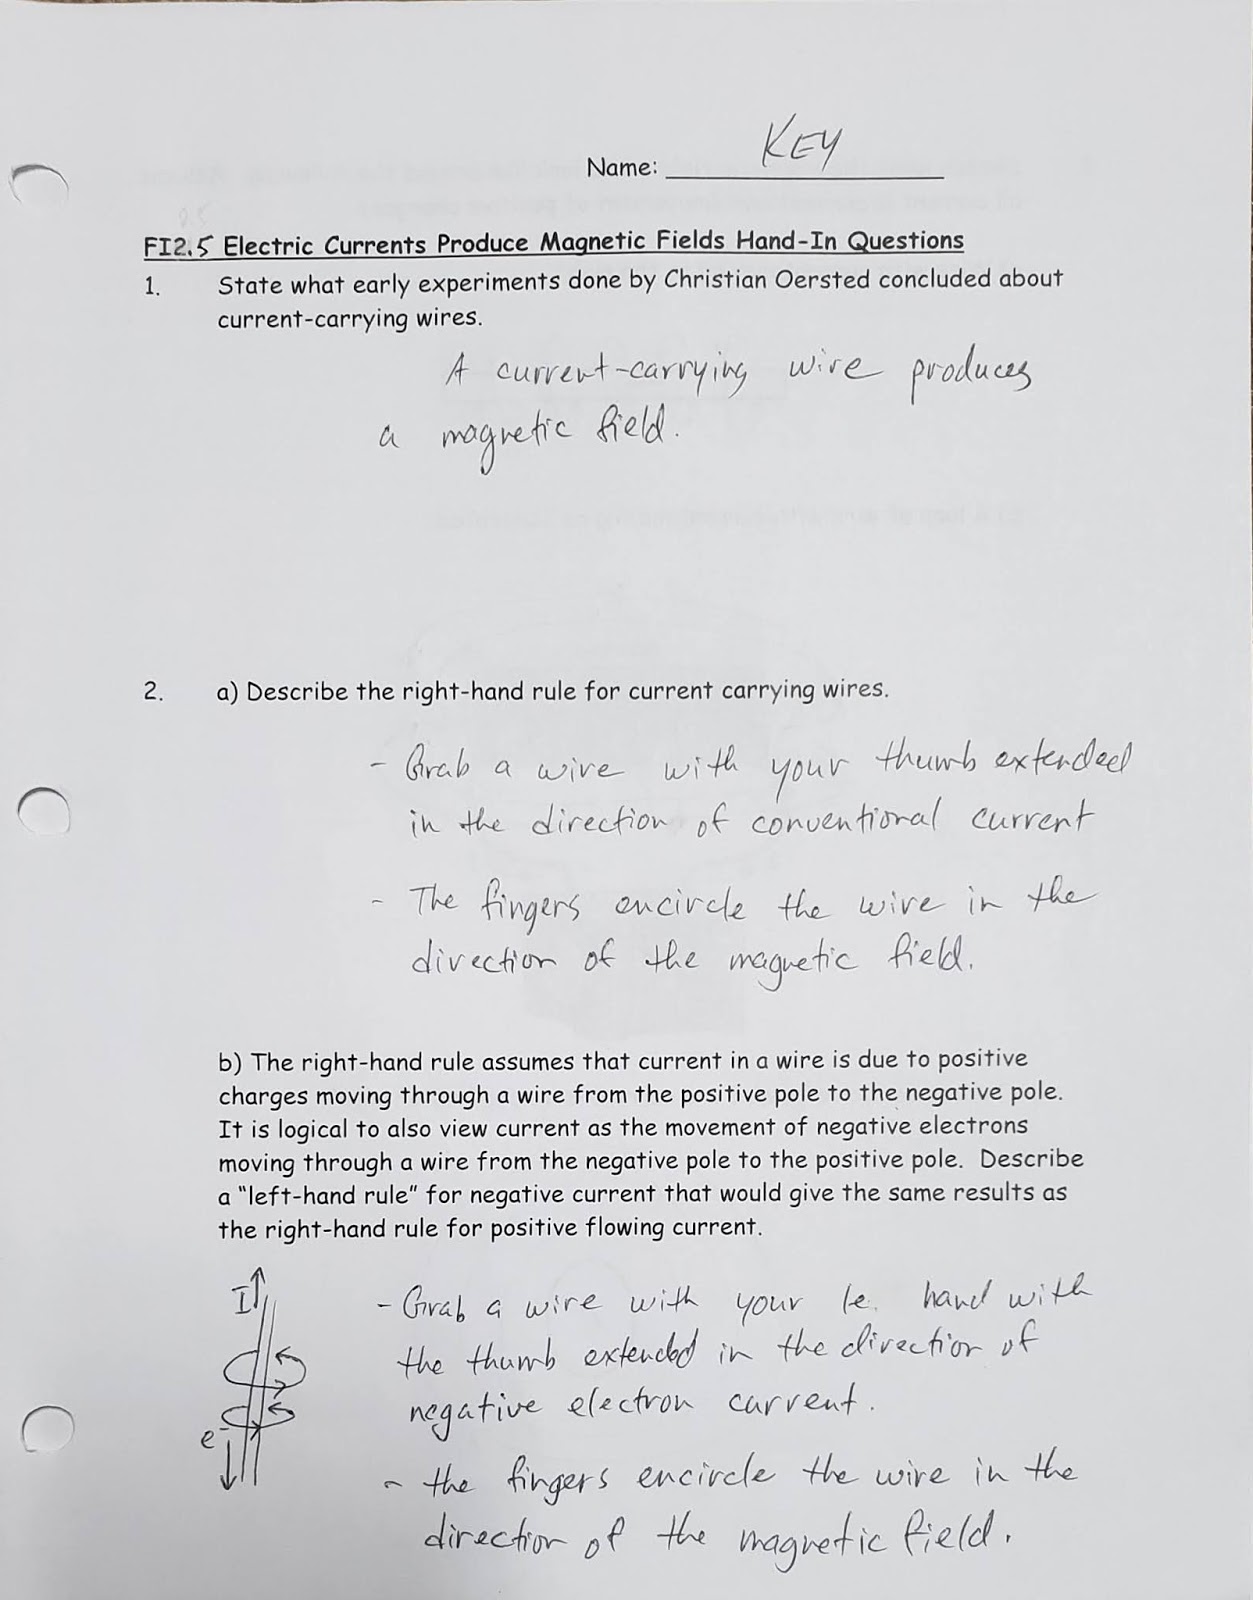 Name: KEY
FI2.5 Electric Currents Produce Magnetic Fields Hand-In Questions
1. State what early experiments done by Christian Oersted concluded about
current-carrying wires.
A current-carrying wire produces
a magnetic field.
2. a) Describe the right-hand rule for current carrying wires.
- Grab a wire with your thumb extended
in the direction of conventional current
- The fingers encircle the wire in the
direction of the magnetic field.
b) The right-hand rule assumes that current in a wire is due to positive
charges moving through a wire from the positive pole to the negative pole.
It is logical to also view current as the movement of negative electrons
moving through a wire from the negative pole to the positive pole. Describe
a "left-hand rule" for negative current that would give the same results as
the right-hand rule for positive flowing current.
I
e-
- Grab a wire with your le. hand with
the thumb extended in the direction of
negative electron current.
- the fingers encircle the wire in the
direction of the magnetic field.